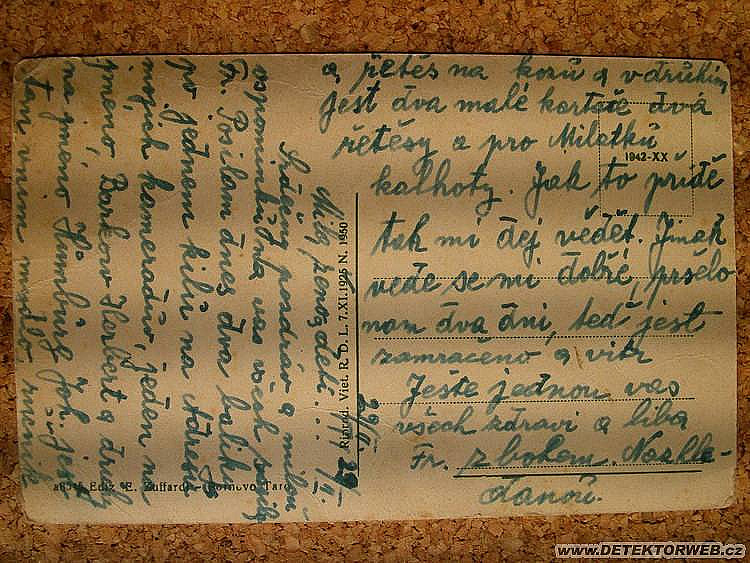 Milá ženo, děti....
Srdečný pozdrav a milou
vzpomínku na vás všech posílá
Fr. Posílám dnes dva balík
po jednem kilu na Adresu
mojich kameradův, jeden na
jméno, Barkow Herbert a druhý
na jméno, Humburg Joh. jest
tam v ním mýdlo, ručník
a řetěs na kozů a v druhím
jest dva malé kortače dvá
řetěsy a pro Milatků
kalhoty. Jak to přídě
tak mi dej vědět. Jinak
vede se mi dobře, pršelo
nam dva dni, teď jest
zamračeno a vitr
Ješte jednou vas
všech zdravi a liba
Fr. z bohem. Nazhle-
danou.
1942-XX
Riprod. Viet. R. D. L. 7.XI.1925 N. 1950
Ediz. E. Zuffardi - Fornovo Taro
www.DETEKTORWEB.cz